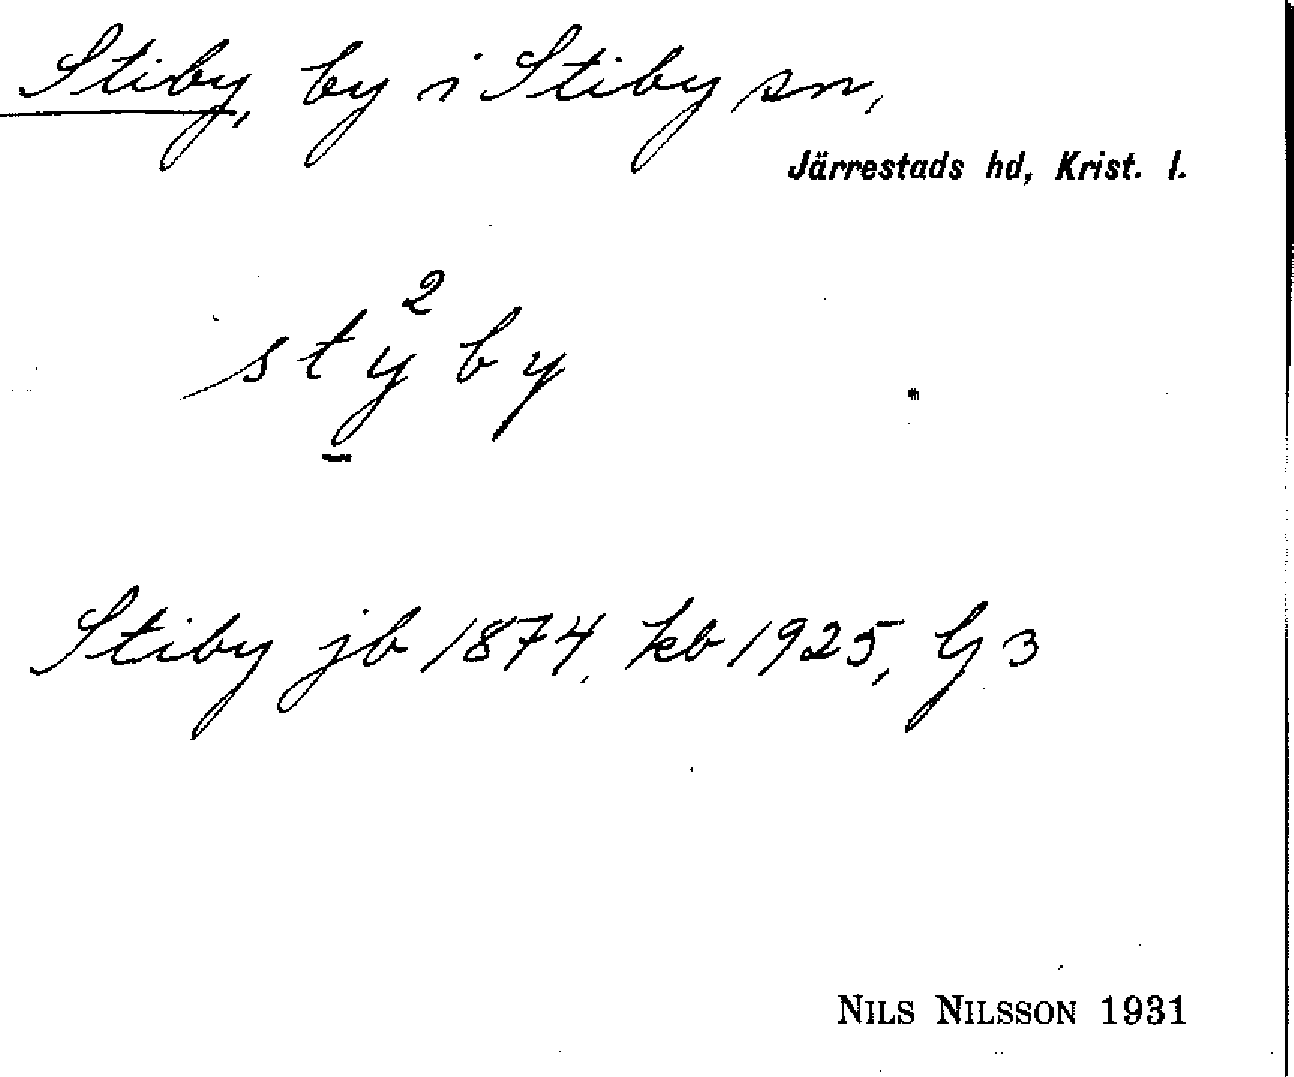 Stiby, by i Stiby sn,
Järrestads hd, Krist. l.
2
styby
Stiby jb 1874, kb 1925, G 3
NILS NILSSON 1931